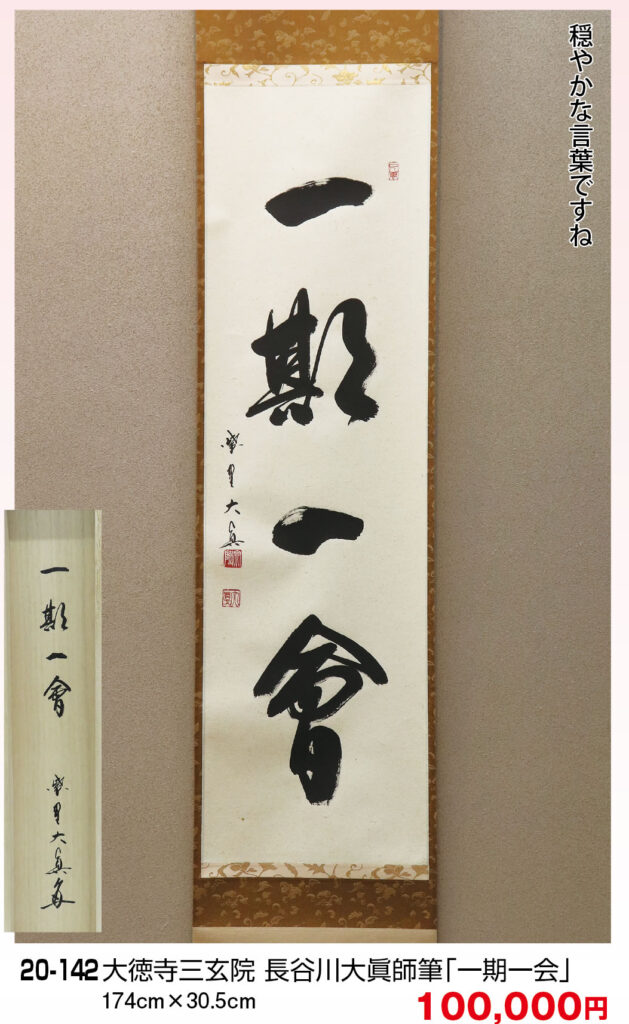 穏やかな言葉ですね
一期一會
大眞
一期一會
大眞
20-142 大徳寺三玄院 長谷川大眞師筆「一期一会」
174cm×30.5cm
100,000円